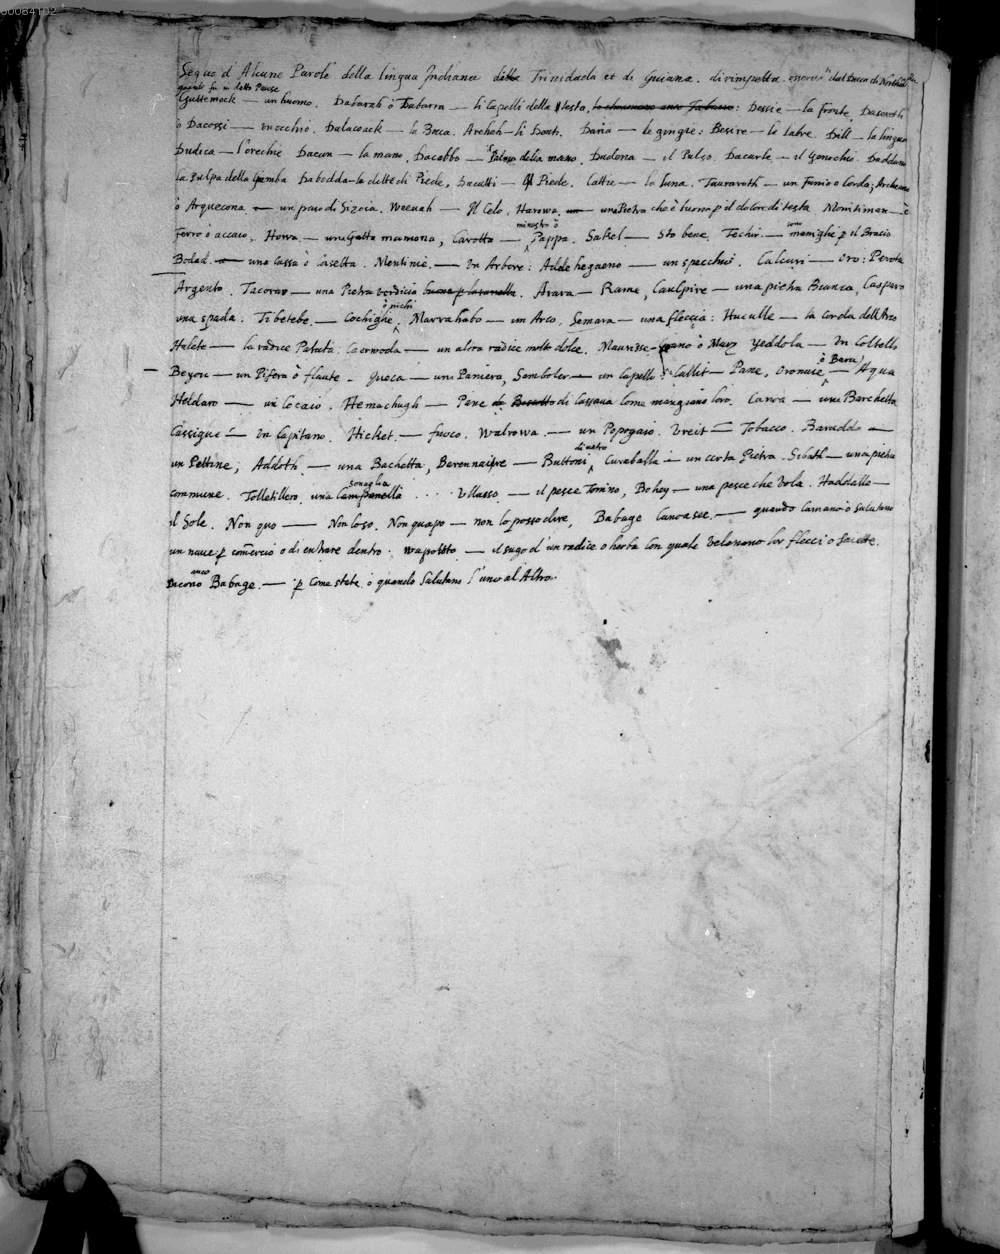 Segue d' Alcune Parole della lingua Indiana della Trinidada et di Guiana. dirimpetto. dal Duca di
quando fu in detto Paese
Guttemock — un huomo. Dabarah ò Dabarra — li Capelli della testa, : Dessie — la fronte,
ò Dacossi — un occhio. Dalacoack — la Bocca. Archeh — li Denti. Daria — le gengie: Desire — le labre. Dill — la lingua
Dudica — l'orechie Dacun — la mano. Dacabbo — Palmo della mano. Dudena — il Polso. Dacurle — il Genochio
la Pulpa della Gamba Dabodda — le dette di Piede, Dacutti — Il Piede. Cattie — la luna. Tauraroth — un Funio o Corda;
ò Arquecona — un paro di Sizoia. Weevah — Il Celo. Harowa. — una Pietra che è buona p il dolor di testa Montiman — è
ministro ò una
Ferro ò accaio. Howa — una Gatta mamona, Carotta — Pappa. Sakel — Sto bene. Techir — maniglie p il Bracio
Bodad — una Cassa ò Caselta. Mentinie. — Un Arbore: Addehegaeno — un specchio. Calcuri — Oro: Perota
Argento. Tacorao — una Pietra verdicia buona p la Arara — Rame, Caulpire — una pietra Bianca, Casparo
ò nichi
una spada. Tibetebe. — Cochiglie, Marrahabo — un Arco. Semara — una fleccia: Huculle — la corda dell Arco
Halete — la radice Patata. Caerwoda — un altra radice molto dolce. Maurisse — grano ò Mayz Yeddola — Un Coltello
ò Bara
Beyou — un Pifera ò flaute. Jueca — un Paniera, Semboler — un Capello: Callit — Pane, Oronuie — Aqua
Heldaro — un Cocaio. Hemachugh — Pane di Cassava Come mangiano loro. Canoa — una Barchetta
Cassique — Un Capitano. Hicket. — fuoco. Walrowa. — un Popogaio. Vreit — Tobacco. Baraddo —
di vetro
un Pettine; Addoth. — una Bachetta, Berennaire — Buttoni, Curaballa — un certa Pietra. Sibath — una pietra
sonaglia
commune. Tolletillero. una Campanella . . . . Ullasso. — il pesce Tonino, Bohery — una pesce che vola. Haddalle —
il Sole. Non quo — Non loso. Non quapo — non lo posso dire, Babage Canoasee. — quando camano ò salutano
un nave p comercio o di entrare dentro. wapototo — il sugo d'un radice o herba Con quale velenano lor flecci o Saette.
anco
Dicono Babage. — p Come state. ò quando Salutano l'uno al Altro.